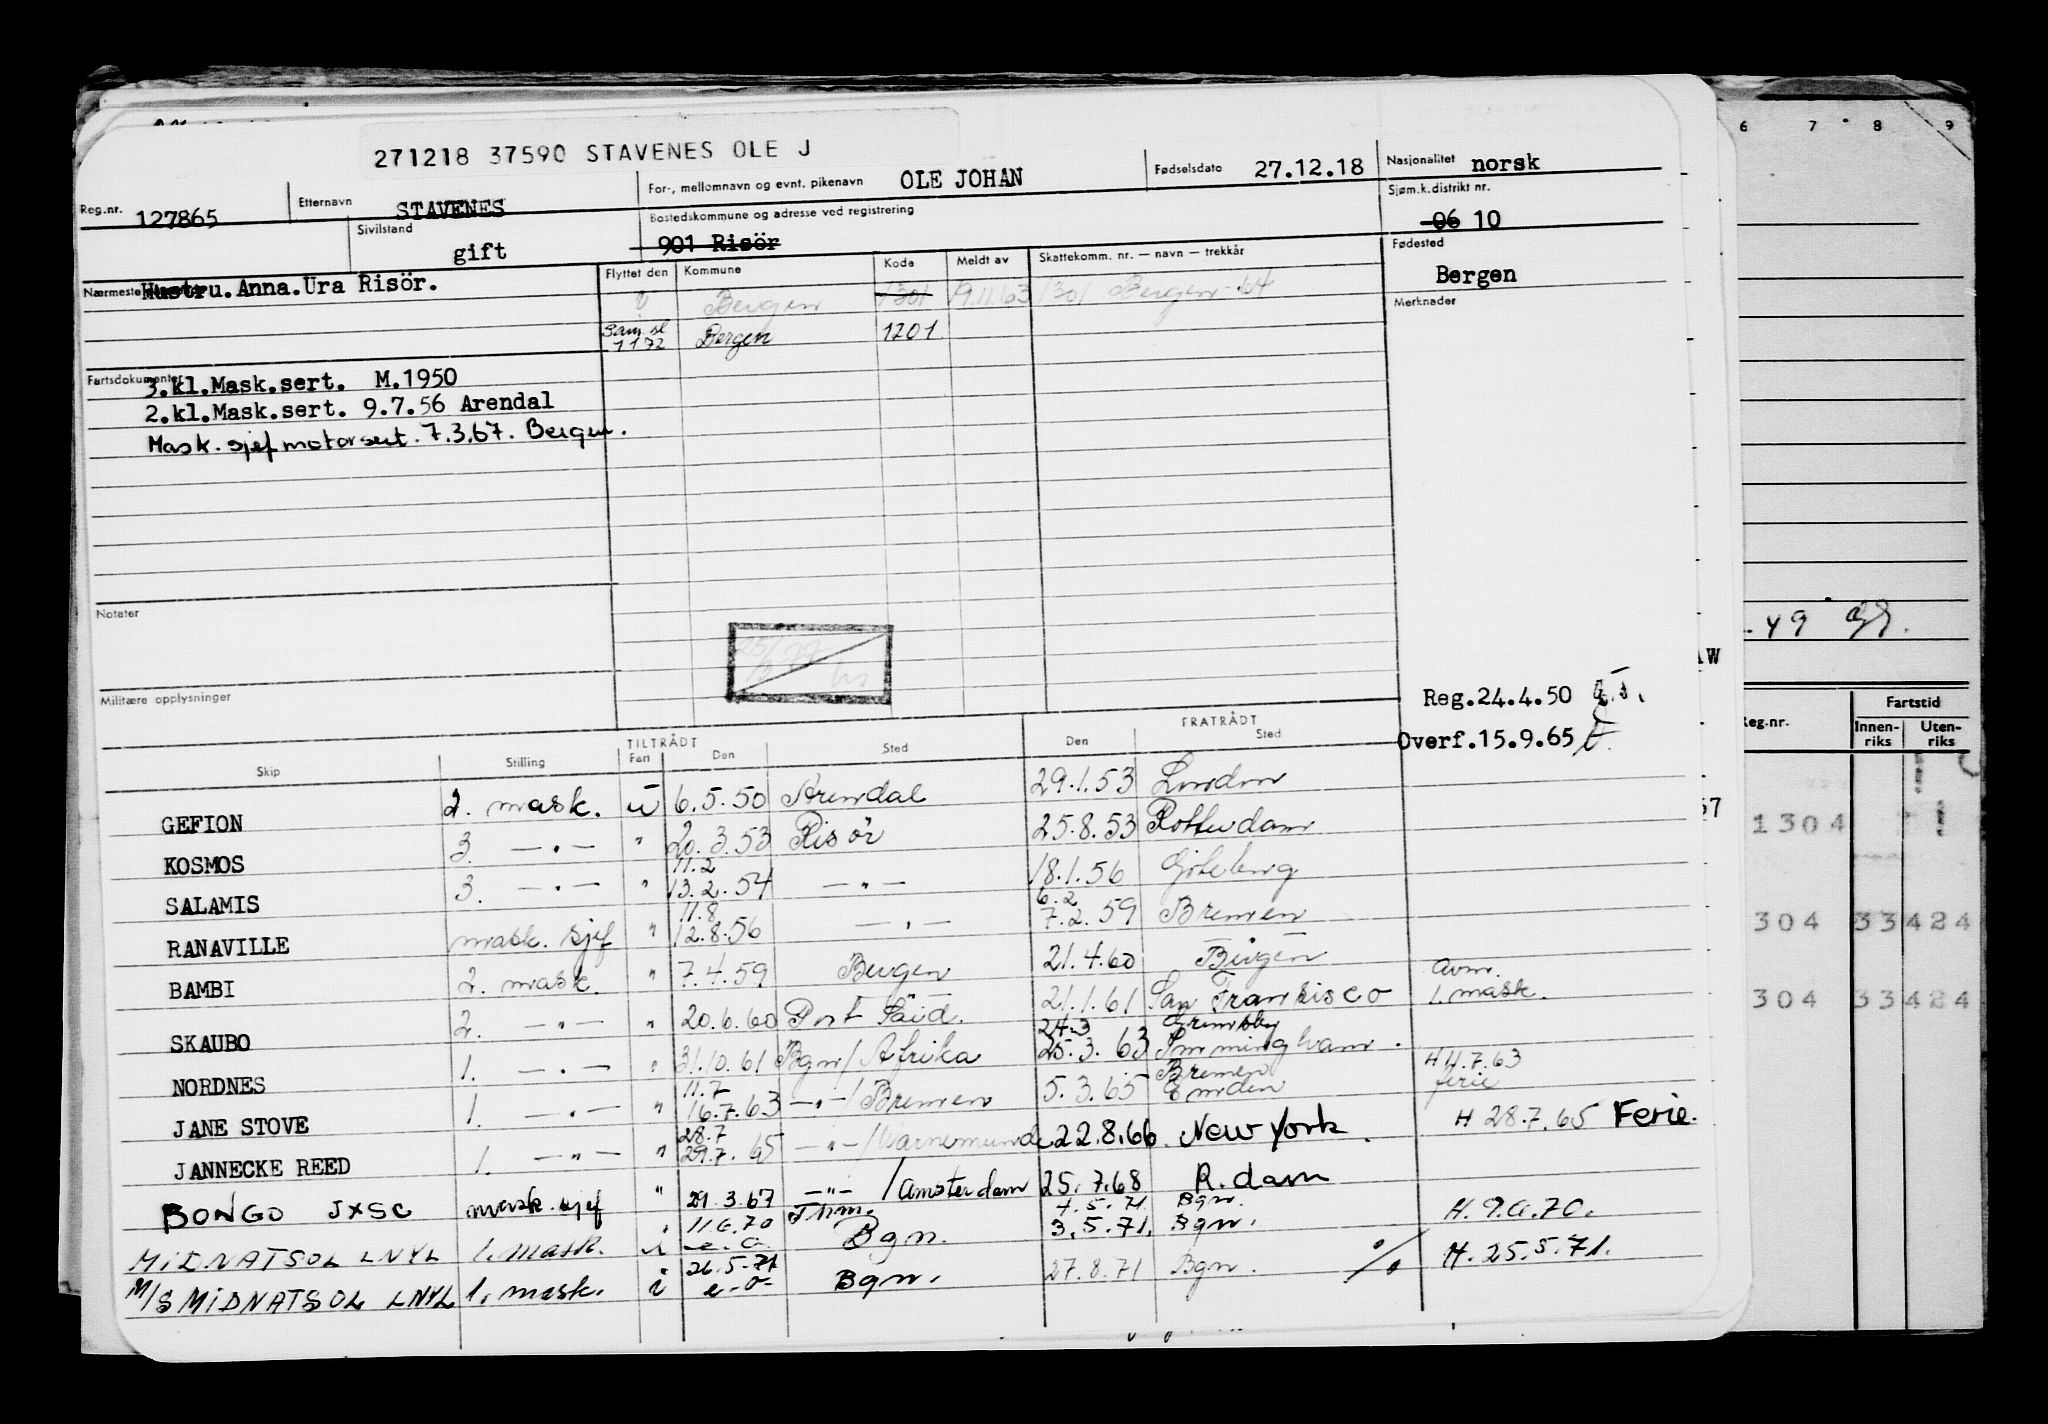 271218 37590 STAVENES OLE J
Reg.nr. 127865 Etternavn STAVENES For-, mellomnavn og evnt. pikenavn OLE JOHAN Fødselsdato 27.12.18 Nasjonalitet norsk
Sivilstand gift Bostedskommune og adresse ved registrering 901 Risör Sjøm.k.distrikt nr. 06 10
Nærmeste Hustru.Anna.Ura Risör. Flyttet den Kommune Kode Meldt av Skattekomm. nr. — navn — trekkår Fødested Bergen
i Bergen 1301 19.11.63 1301 Bergen - 64 Merknader
Sam. sl 1 1 72 Bergen 1201
Fartsdokumenter 3.kl.Mask.sert. M.1950
2.kl.Mask.sert. 9.7.56 Arendal
Mask. sjef motorsert. 7.3.67. Bergen.
Notater
Militære opplysninger
Reg.24.4.50
Overf.15.9.65
TILTRÅDT FRATRÅDT
Skip Stilling Fart Den Sted Den Sted
GEFION 2. mask. u 6.5.50 Arendal 29.1.53 London
KOSMOS 3. — " — " 20.3.53 Risör 25.8.53 Rotterdam
SALAMIS 3. — " — " 11.2 13.2.54 — " — 18.1.56 Göteborg
RANAVILLE mask. sjef " 11.8 12.8.56 — " — 6.2 7.2.59 Bremen
BAMBI 2. mask. " 7.4.59 Bergen 21.4.60 Bergen
SKAUBO 2. — " — " 20.6.60 Port Said. 21.1.61 San Fransisco avm. 1. mask.
NORDNES 1. — " — " 31.10.61 Bgn/Afrika 24.3 25.3.63 Grimsby Immingham.
JANE STOVE 1. — " — " 11.7 16.7.63 — " — / Bremen 5.3.65 Bremen Emden H 11.7.63 ferie
JANNECKE REED 1. — " — " 28.7 29.7.65 — " — / Warnemunde 22.8.66. New York. H 28.7.65 Ferie.
BONGO JXSC mask. sjef " 29.3.67 — " — / Amsterdam 25.7.68 R.dam
MIDNATSOL LNYL 1. mask. i 11.6.70 Bgn. 4.5.71 3.5.71. Bgn. Bgn. H. 9.6.70.
M/S MIDNATSOL LNYL 1. mask. i 26.5.71 Bgn. 27.8.71 Bgn. H. 25.5.71.
6 7 8 9
Reg.nr. Fartstid
Innen-riks Uten-riks
1304
304 33 424
304 33 424